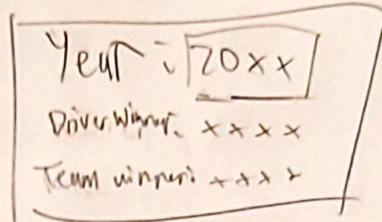 Year: 20xx
Driver Winner: xxxx
Team winner: xxxx